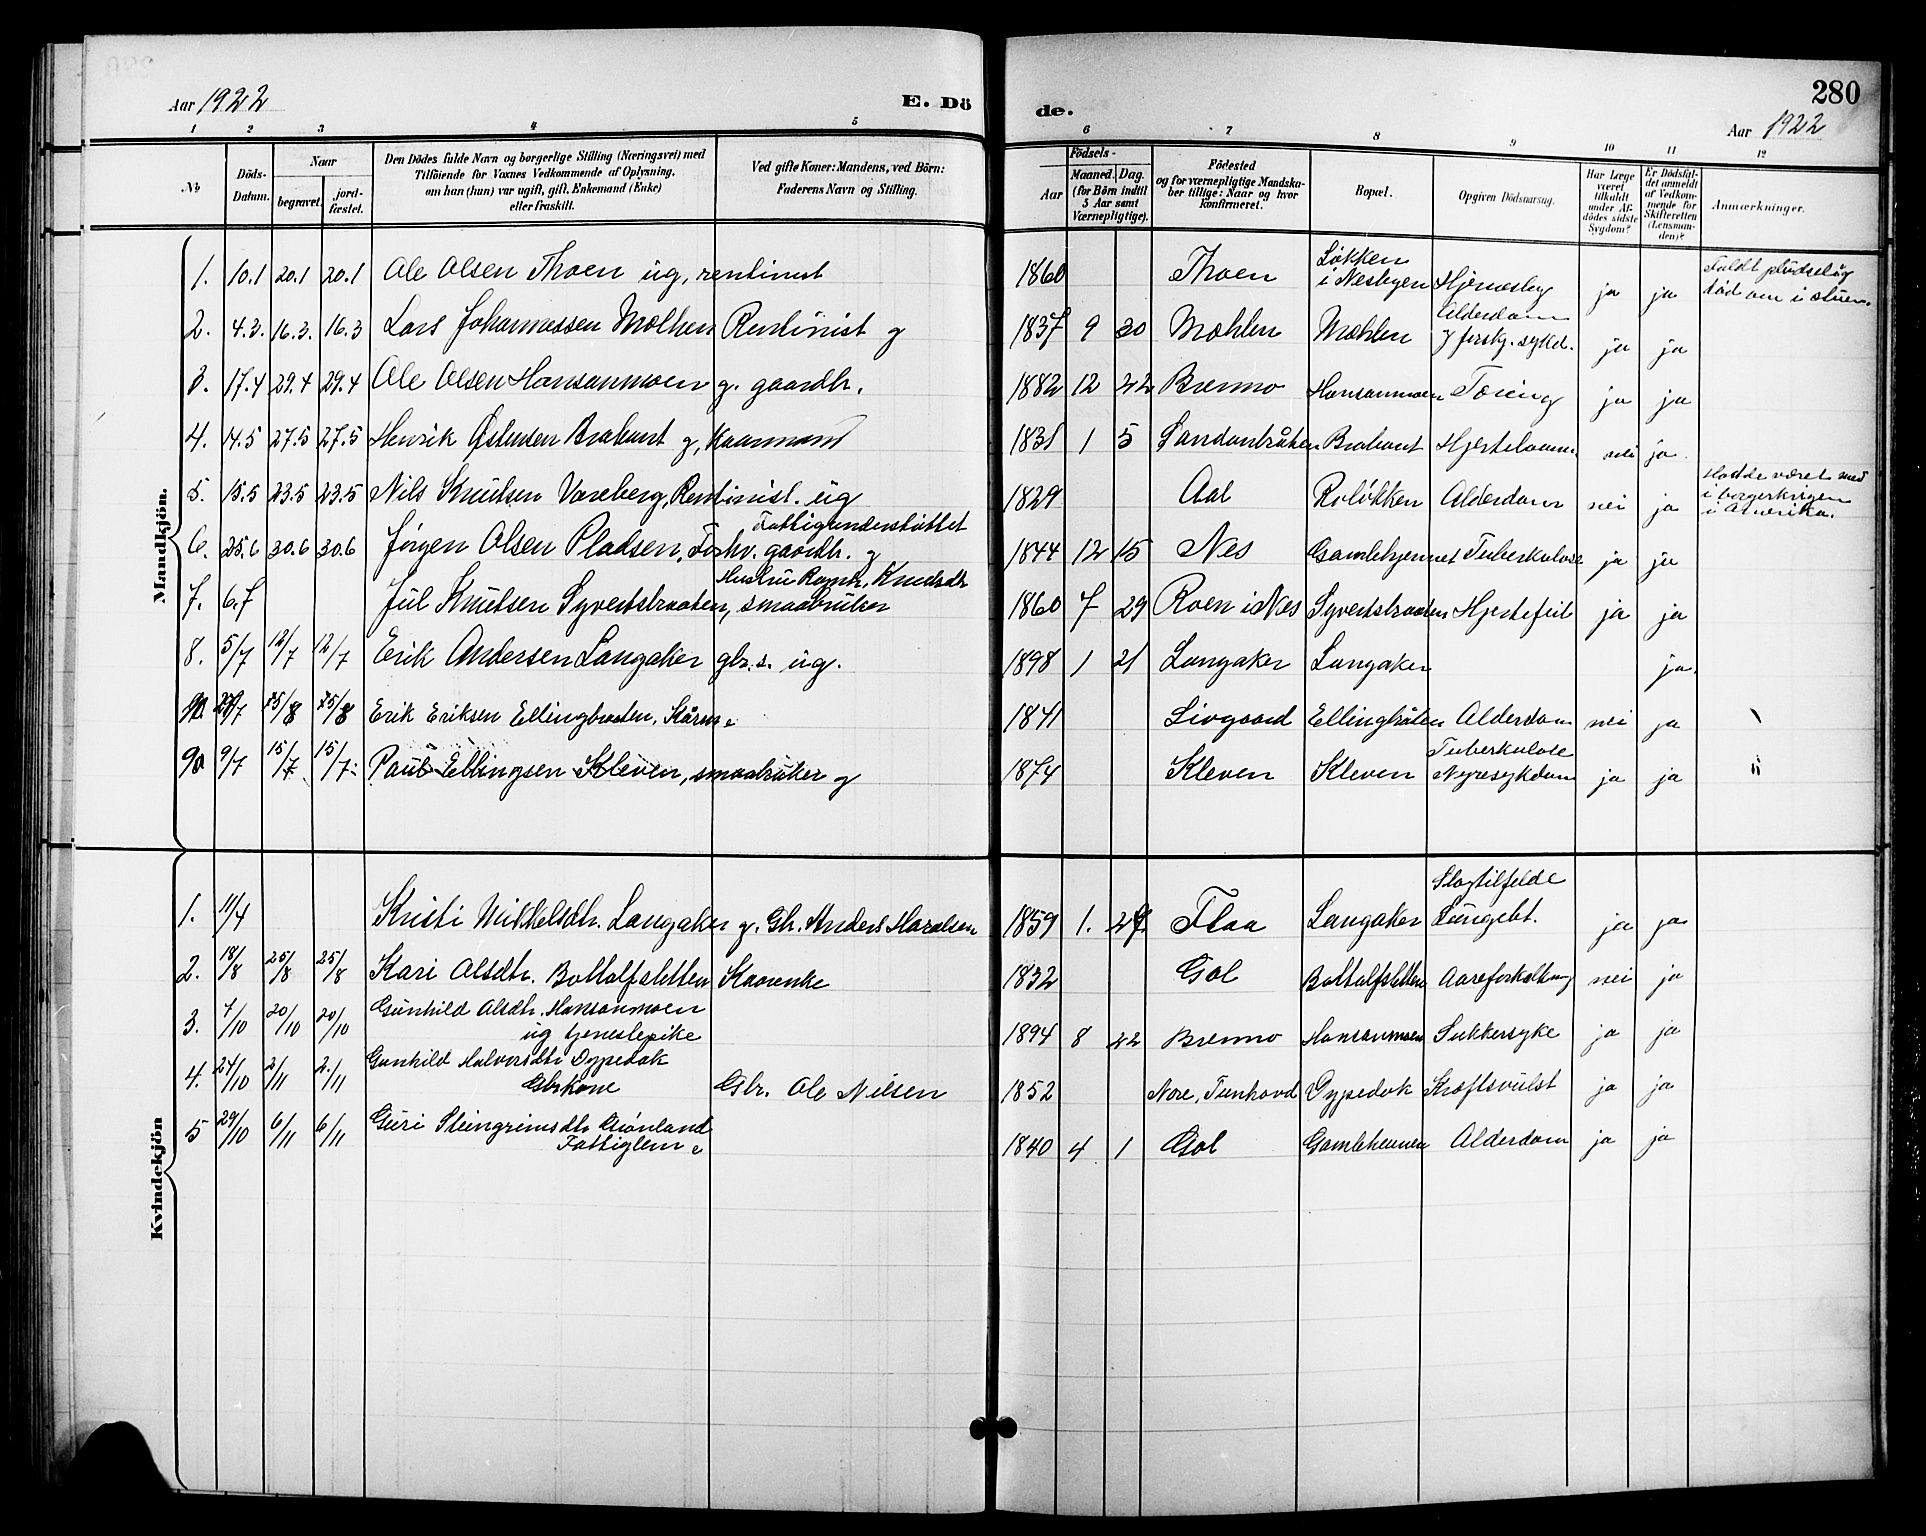 Aar 1922
E. Dö
de.
280
Aar 1922
1 2 3 4 5 6 7 8 9 10 11 12
No
Döds-Datum.
Naar
begravet.
jord-fæstet.
Den Dödes fulde Navn og borgerlige Stilling (Næringsvei) med
Tilföiende for Voxnes Vedkommende af Oplysning,
om han (hun) var ugift, gift, Enkemand (Enke)
eller fraskilt.
Ved gifte Koner: Mandens, ved Börn:
Faderens Navn og Stilling.
Födsels-
Aar
Maaned. Dag.
(for Börn indtil
5 Aar samt
Værnepligtige).
Födested
og for værnepligtige Mandska-
ber tillige: Naar og hvor
konfirmeret.
Bopæl.
Opgiven Dödsaarsag.
Har Læge
været
tilkaldt
under Af-
dödes sidste
Sygdom?
Er Dödsfal-
det anmeldt
af Vedkom-
mende for
Skifteretten
(Lensman-
den)?
Anmærkninger.
Mandkjön.
1. 10.1 20.1 20.1 Ole Olsen Thoen ug, rentinist 1860 Thoen Løkken i Nesbyen Hjerneslag ja ja Faldt pludselig død om i stuen.
2. 4.3. 16.3. 16.3 Lars Johannessen Mæhlen Rentinist g 1837 9 20 Mæhlen Mæhlen Alderdom g forskj. sykd. ja ja
3. 17.4 29.4 29.4 Ole Olsen Hansanmoen g. gaardbr. 1882 12 22 Brenno Hansanmoen Tæring ja ja
4. 14.5 27.5 27.5 Henrik Østensen Brabant g, Kaarmand 1831 1 5 Sandanbråten Brabant nei ja
5. 15.5 23.5 23.5 Nils Knutsen Vareberg, Rentinist. ug 1829 Aal Roløkken Alderdom nei ja Hadde været med i borgerkrigen i Amerika.
6. 25.6 30.6 30.6 Jørgen Olsen Pladsen, Forhv. gaardbr. g Fattigunderstøttet 1844 12 15 Nes Gamlehjemmet Tuberkulose ja ja
7. 6.7 Jul Knutsen Syvertsbraaten, smaabruker Hustru Knudsdtr 1860 7 29 Roen i Nes Syvertsbraaten Hjertefeil ja ja
8. 5/7 12/7 12/7 Erik Andersen Langaker gbr.s. ug. 1898 1 21 Langaker Langaker ja.
/7 /8 /8 Erik Eriksen Ellingbraaten, Kårm. e 1841 Livgaard Ellingbråten Alderdom nei ja
9 9/7 15/7 15/7. Paul Ellingsen Kleven, smaabruker g 1874 Kleven Kleven Tuberkulose Nyresykdom ja ja
Kvindekjön
1. 11/4 Kristi Mikkelsdtr. Langaker g. Gbr. Anders Haralsen 1859 1. 27. Flaa Langaker Slagtilfelde Lungebt. ja ja
2. 18/8 25/8 25/8 Kari Olsdtr. Bottolfsletten Kaarenke 1832 Gol Bottolfsletten Aareforkalkning nei ja
3. 7/10 20/10 20/10 Gunhild Olsdtr. Hansanmoen
ug tjenestepike 1894 8 22 Brenno Hansanmoen Sukkersyke ja ja
4. 24/10 2/11 2/11 Gunhild Halvorsdtr Dypedok
Gbrkone Gbr. Ole Nilsen 1852 Nore, Tunhovd Dypedok Kræftsvulst ja ja
5 29/10 6/11 6/11 Guri Steingrimsdtr Grønland
Fattiglem e 1840 4 1 Gol Gamleheimen Alderdom ja ja